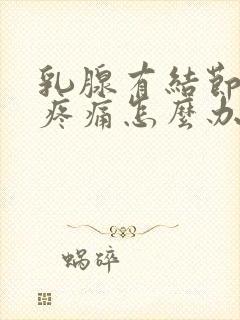 乳腺有結節
疼痛怎麼办
蜗碎